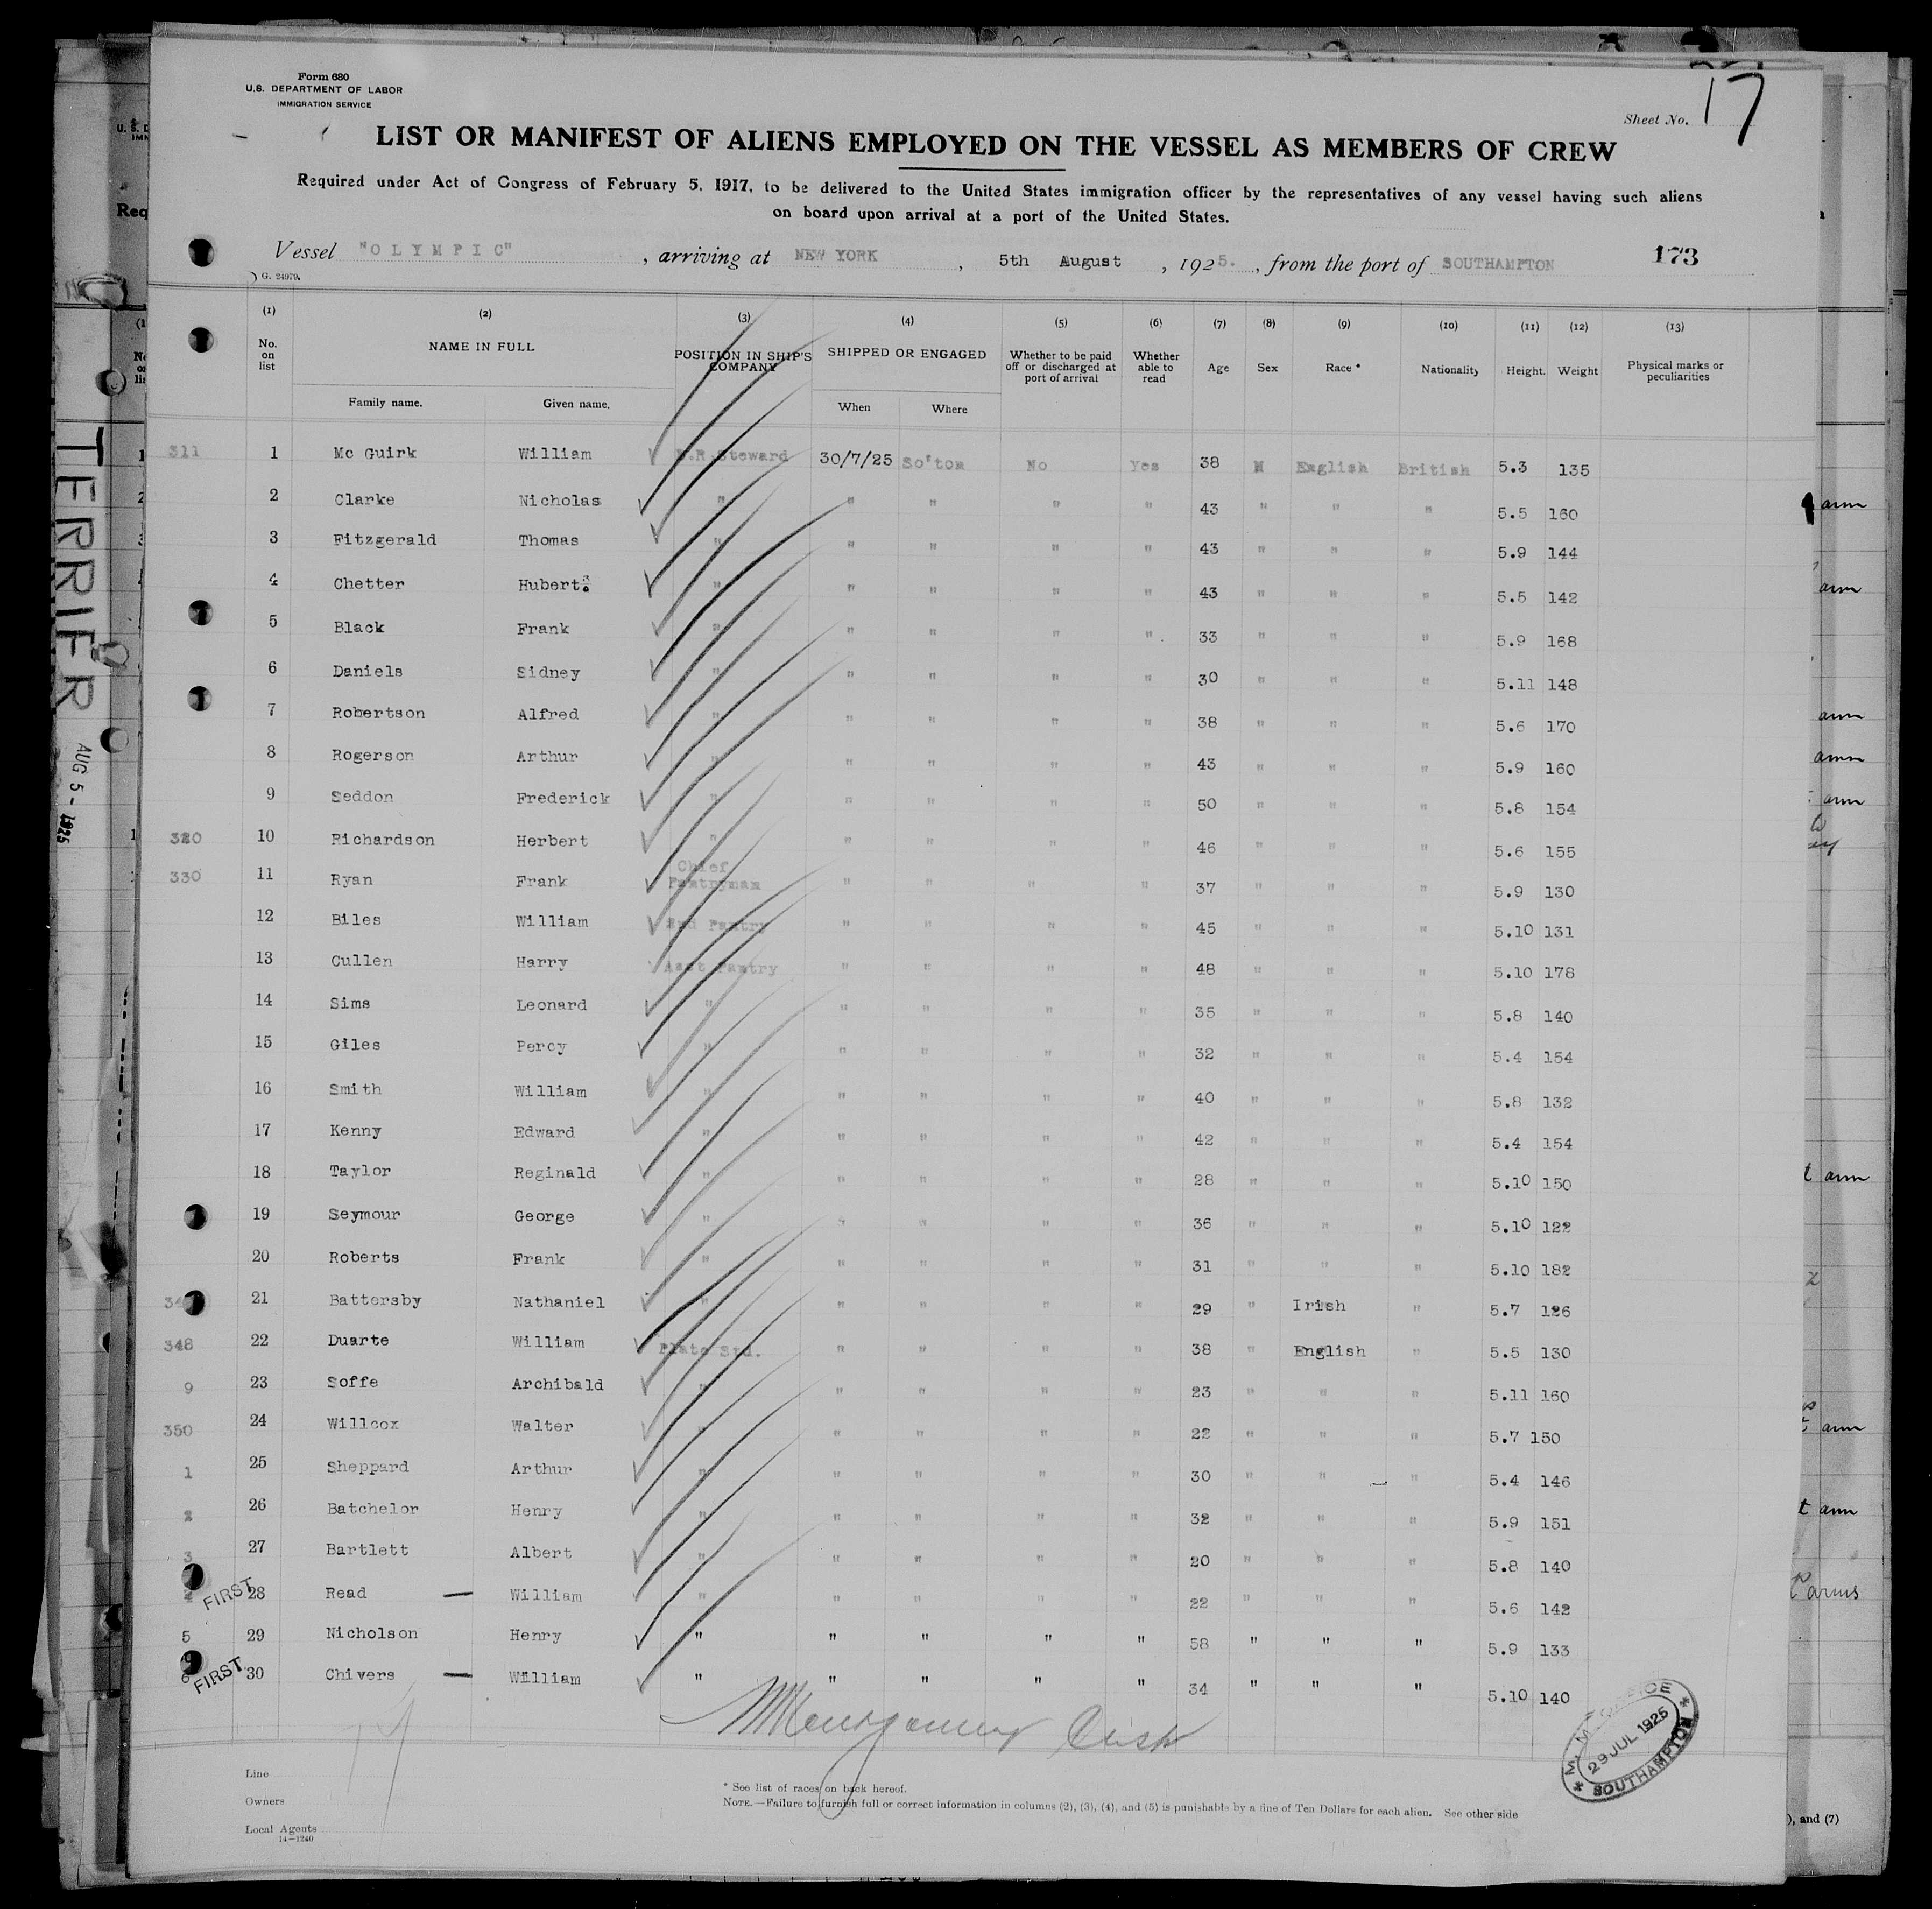 Form 680
U.S. DEPARTMENT OF LABOR
IMMIGRATION SERVICE
Sheet No. 17
LIST OR MANIFEST OF ALIENS EMPLOYED ON THE VESSEL AS MEMBERS OF CREW
Required under Act of Congress of February 5, 1917, to be delivered to the United States immigration officer by the representatives of any vessel having such aliens
on board upon arrival at a port of the United States.
Vessel "OLYMPIC", arriving at NEW YORK, 5th August, 1925., from the port of SOUTHAMPTON 173
G. 24979.
(1) (2) (3) (4) (5) (6) (7) (8) (9) (10) (11) (12) (13)
No. on list NAME IN FULL POSITION IN SHIP'S COMPANY SHIPPED OR ENGAGED Whether to be paid off or discharged at port of arrival Whether able to read Age Sex Race * Nationality Height. Weight Physical marks or peculiarities
Family name. Given name. When Where
311 1 Mc Guirk William .R.Steward 30/7/25 So'ton No Yes 38 M English British 5.3 135
2 Clarke Nicholas " " " " " 43 " " " 5.5 160
3 Fitzgerald Thomas " " " " " 43 " " " 5.9 144
4 Chetter Hubert " " " " " 43 " " " 5.5 142
5 Black Frank " " " " " 33 " " " 5.9 168
6 Daniels Sidney " " " " " 30 " " " 5.11 148
7 Robertson Alfred " " " " " 38 " " " 5.6 170
8 Rogerson Arthur " " " " " 43 " " " 5.9 160
9 Seddon Frederick " " " " " 50 " " " 5.8 154
320 10 Richardson Herbert " " " " " 46 " " " 5.6 155
330 11 Ryan Frank Chief Pantryman " " " " 37 " " " 5.9 130
12 Biles William 2nd Pantry " " " " 45 " " " 5.10 131
13 Cullen Harry Asst Pantry " " " " 48 " " " 5.10 178
14 Sims Leonard " " " " " 35 " " " 5.8 140
15 Giles Percy " " " " " 32 " " " 5.4 154
16 Smith William " " " " " 40 " " " 5.8 132
17 Kenny Edward " " " " " 42 " " " 5.4 154
18 Taylor Reginald " " " " " 28 " " " 5.10 150
19 Seymour George " " " " " 36 " " " 5.10 122
20 Roberts Frank " " " " " 31 " " " 5.10 182
21 Battersby Nathaniel " " " " " 29 " Irish " 5.7 126
348 22 Duarte William Plate Std. " " " " 38 " English " 5.5 130
9 23 Soffe Archibald " " " " " 23 " " " 5.11 160
350 24 Willcox Walter " " " " " 22 " " " 5.7 150
1 25 Sheppard Arthur " " " " " 30 " " " 5.4 146
2 26 Batchelor Henry " " " " " 32 " " " 5.9 151
3 27 Bartlett Albert " " " " " 20 " " " 5.8 140
FIRST 28 Read — William " " " " " 22 " " " 5.6 142
5 29 Nicholson Henry " " " " " 58 " " " 5.9 133
6 FIRST 30 Chivers — William " " " " " 34 " " " 5.10 140
29 JUL 1925
SOUTHAMPTON
Line
Owners
Local Agents
14—1240
* See list of races on back hereof.
NOTE.—Failure to furnish full or correct information in columns (2), (3), (4), and (5) is punishable by a fine of Ten Dollars for each alien. See other side
AUG 5 - 1925
arm
arm
arm
arm
arm
t arm
arm
t arm
arms
), and (7)